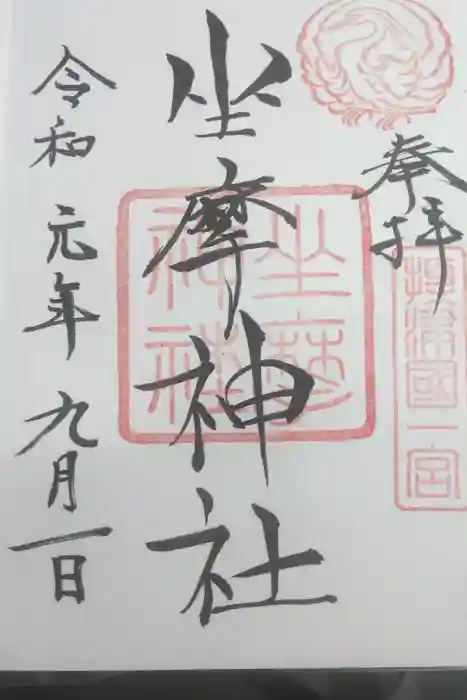 奉拝
摂津國一宮
坐摩神社
坐摩
神社
令和元年九月一日